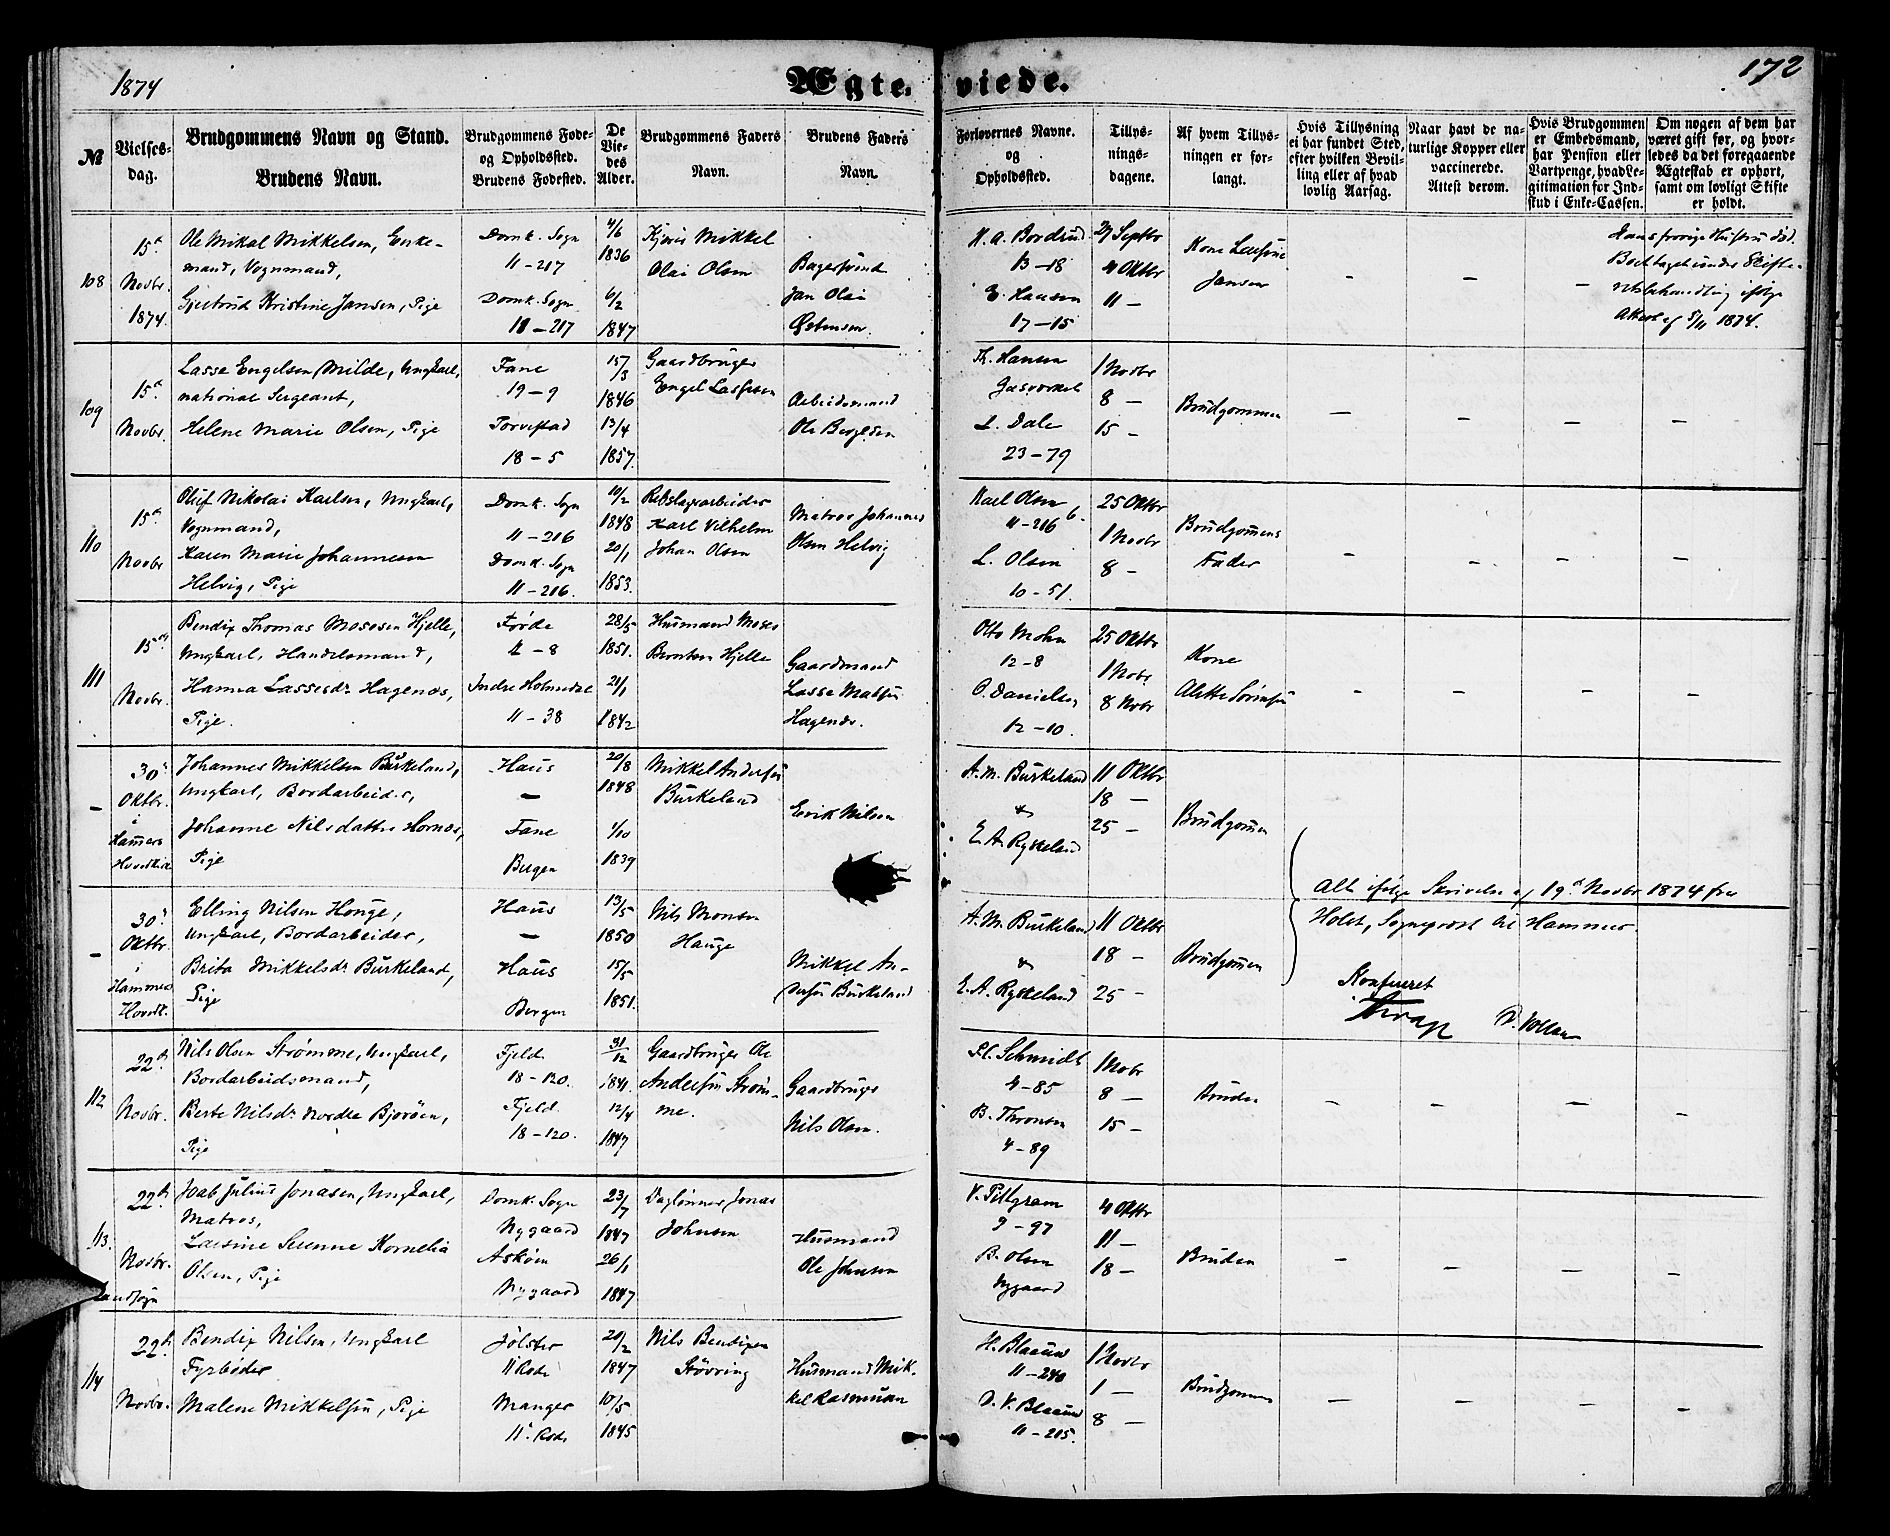 1874
Ægteviede.
172
No
Vielses-
dag.
Brudgommens Navn og Stand.
Brudens Navn.
Brudgommens Føde-
og Opholdssted.
Brudens Fødested.
De
Vie-
des
Alder.
Brudgommens Faders
Navn.
Brudens Faders
Navn.
Forlovernes Navne.
og
Opholdssted.
Tillys-
nings-
dagene.
Af hvem Tillys-
ningen er for-
langt.
Hvis Tillysning
ei har fundet Sted,
efter hvilken Bevil-
ling eller af hvad
lovlig Aarsag.
Naar havt de na-
turlige Kopper eller
vaccinerede.
Attest derom.
Hvis Brudgommen
er Embedsmand,
har Pension eller
Vartpenge, hvad Le-
gitimation for Ind-
skud i Enke-Cassen.
Om nogen af dem har
været gift før, og hvor-
ledes da det foregaaende
Ægteskab er ophørt,
samt om lovligt Skifte
er holdt.
108
15de
Novbr.
1874.
Ole Mikal Mikkelsen, Enke-
mand, Vognmand,
Gjertrud Kristine Jansen, Pige
Domk. Sogn
11-217
Domk. Sogn
11-217
4/6
1836
6/2
1847
Mikkel
Olai Olsen
Jan Olai
H. A. Bordrud
13-18
E. Hansen
17-15
27 Septbr
4 Oktbr
11 -
Kone
Jansen
-
-
-
Hans forrige Hustru død.
Boet taget under Skifte-
retsbehandling ifølge
Attest af 5/11 1874.
109
15de
Novbr.
Lasse Engelsen Milde, Ungkarl,
national Sergeant,
Helene Marie Olsen, Pige
Fane
19-9
Torvestad
18-5
15/3
1846
13/4
1857.
Gaardbruger
Engel Lassesen
Arbeidsmand
Ole
Th. Hansen
Gasverket
L. Dale
23-79
1 Novbr
8 -
15 -
Brudgommen
-
-
-
-
110
15de
Novbr
Oluf Nikolai Karlsen, Ungkarl,
Vognmand,
Karen Marie Johannesen
Helvig, Pige
Domk. Sogn
11-216
Domk. Sogn
11-216.
10/2
1848
20/1
1853.
Rebslagerarbeider
Karl Vilhelm
Johan Olsen
Matros Johannes
Olsen Helvig
Karl Olsen
11-216 b.
L. Olsen
10-51.
25 Oktbr
1 Novbr
8 -
Brudgommens
Fader
-
-
-
-
111
15de
Novbr.
Bendix Thomas Mosesen Hjelle,
Ungkarl, Handelsmand,
Hanna Lassesdr Hagenæs,
Pige.
Førde
12-8
Indre Holmedal
11-38
28/5
1851.
21/1
1842
Husmand Moses
Berntsen Hjelle
Gaardmand
Lasse Matsen
Hagenæs.
Otto Mohn
12-8
O. Danielsen
12-10.
25 Oktbr
1 Novbr
8 Novbr
Kone
Alette Sørensen
-
-
-
-
-
30te
Oktbr.
i
Hammers
Hovedkirke
Johannes Mikkelsen Burkeland,
Ungkarl, Bordarbeider,
Johanne Nilsdatter Hornæs,
Pige
Haus
-
Fane
Bergen
20/8
1848
1/10
1839
Mikkel Andersen
Burkeland
Erik Nilsen
A. M. Burkeland
&
E. A. Rykeland
11 Oktbr
18 -
25 -
Brudgommen
Alt ifølge Skrivelse af 19de Novbr 1874 fra
Holst, Sogneprest til Hammer.
Konfereret
D. Vollan
-
30te
Oktbr.
i
Hammers
Hovedk.
Elling Nilsen Houge,
Ungkarl, Bordarbeider,
Brita Mikkelsdr Burkeland,
Pige
Haus
-
Haus
Bergen
13/5
1850
15/5
1851.
Nils Monsen
Hauge
Mikkel An-
dersen Burkeland
A. M. Burkeland
&
E. A. Rykeland
11 Oktbr
18 -
25 -
Brudgommen
112
22de
Novbr.
Nils Olsen Strømme, Ungkarl,
Bordarbeidsmand,
Berte Nilsdr Nordre Bjorøen,
Pige
Fjeld
18-120.
Fjeld.
18-120.
31/12
1841.
12/4
1847
Gaardbruger Ole
Andersen Strøm-
me.
Gaardbruger
Nils Olsen.
Schmidt
4-85
B. Thronsen
4-89
1 Novbr
8 -
15 -
Bruden
-
-
-
-
113.
22de
Novbr.
Landsogn
Joab Julius Jonasen, Ungkarl,
Matros,
Lavsine Serenne Kornelia
Olsen, Pige
Domk. Sogn
Nygaard
Askøen
Nygaard
23/7
1847
26/1
1847
Daglønner Jonas
Johnsen
Husmand
Ole Johnsen
V. Piltgram
9-97
B. Olsen
Nygaard
4 Oktbr
11 -
18 -
Bruden
-
-
-
-
114
22de
Novbr.
Bendix Nilsen, Ungkarl
Fyrbøder
Malene Mikkelsen, Pige
Jølster
11 Rode
Manger
11 Rode
20/2
1847
10/5
1845
Nils Bendixen
Støvring
Husmand Mik-
kel Rasmusen
H. Blaauw
11-240
D. V. Blaauw
11-215.
1 Novbr
1 -
8 -
Brudgommen
-
-
-
-